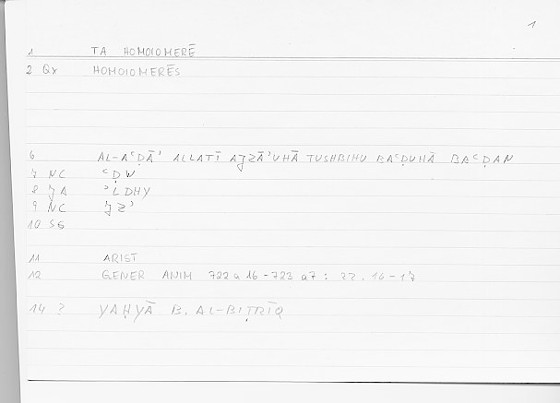 1
1 TA HOMOIOMERĒ
2 Qr HOMOIOMERĒS
6 AL-AʿḌĀʾ ALLATĪ AJZĀʾUHĀ TUSHBIHU BAʿḌUHĀ BAʿḌAN
7 NC ʿḌW
8 JA ʾLDHY
9 NC JZʾ
10 SG
11 ARIST
12 GENER ANIM 722a16-723a7: 22.16-17
14 ? YAḤYĀ B. AL-BIṬRĪQ